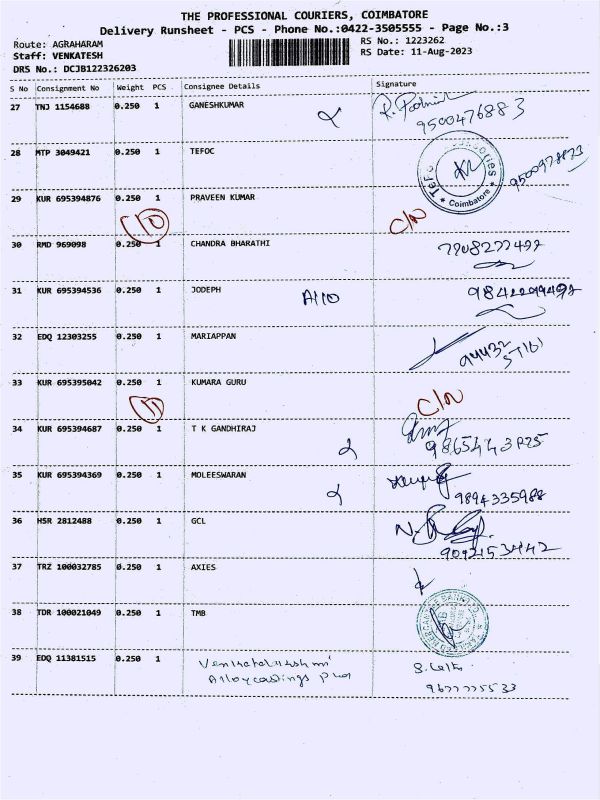 THE PROFESSIONAL COURIERS, COIMBATORE
Delivery Runsheet - PCS - Phone No.:0422-3505555 - Page No.:3
Route: AGRAHARAM RS No.: 1223262
Staff: VENKATESH RS Date: 11-Aug-2023
DRS No.: DCJB122326203
S No Consignment No Weight PCS Consignee Details Signature
27 TNJ 1154688 0.250 1 GANESHKUMAR
9500476883
28 MTP 3049421 0.250 1 TEFOC
Coimbatore
29 KUR 695394876 0.250 1 PRAVEEN KUMAR
C/N
30 RMD 969098 0.250 1 CHANDRA BHARATHI
31 KUR 695394536 0.250 1 JODEPH
32 EDQ 12303255 0.250 1 MARIAPPAN
33 KUR 695395042 0.250 1 KUMARA GURU
C/N
34 KUR 695394687 0.250 1 T K GANDHIRAJ
35 KUR 695394369 0.250 1 MOLEESWARAN
9894335988
36 HSR 2812488 0.250 1 GCL
37 TRZ 100032785 0.250 1 AXIES
38 TDR 100021049 0.250 1 TMB
39 EDQ 11381515 0.250 1